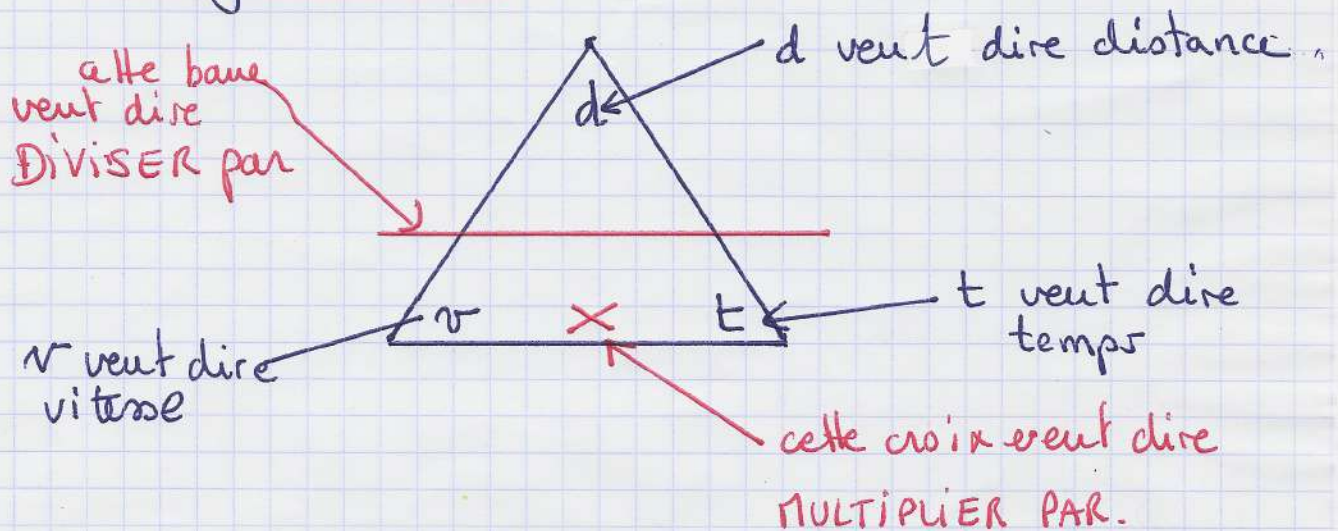 d veut dire distance.
cette barre
veut dire
DIVISER par
d
v × t
t veut dire
temps
v veut dire
vitesse
cette croix veut dire
MULTIPLIER PAR.